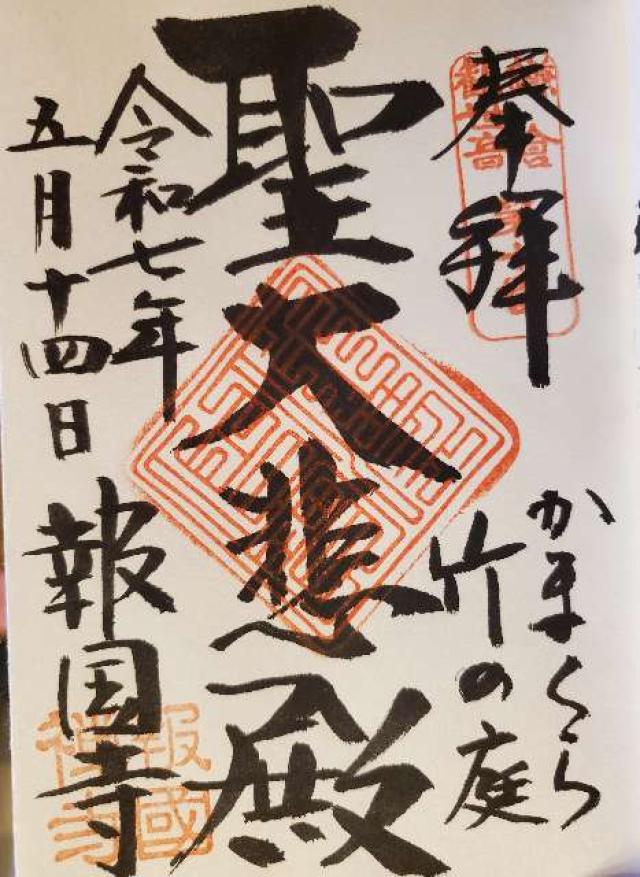 奉拝
かまくら
竹の庭
聖大悲殿
令和七年
五月十四日
報国寺
報國
禅寺